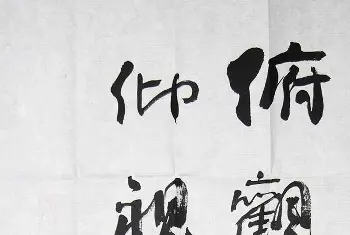 俯觀
仰視